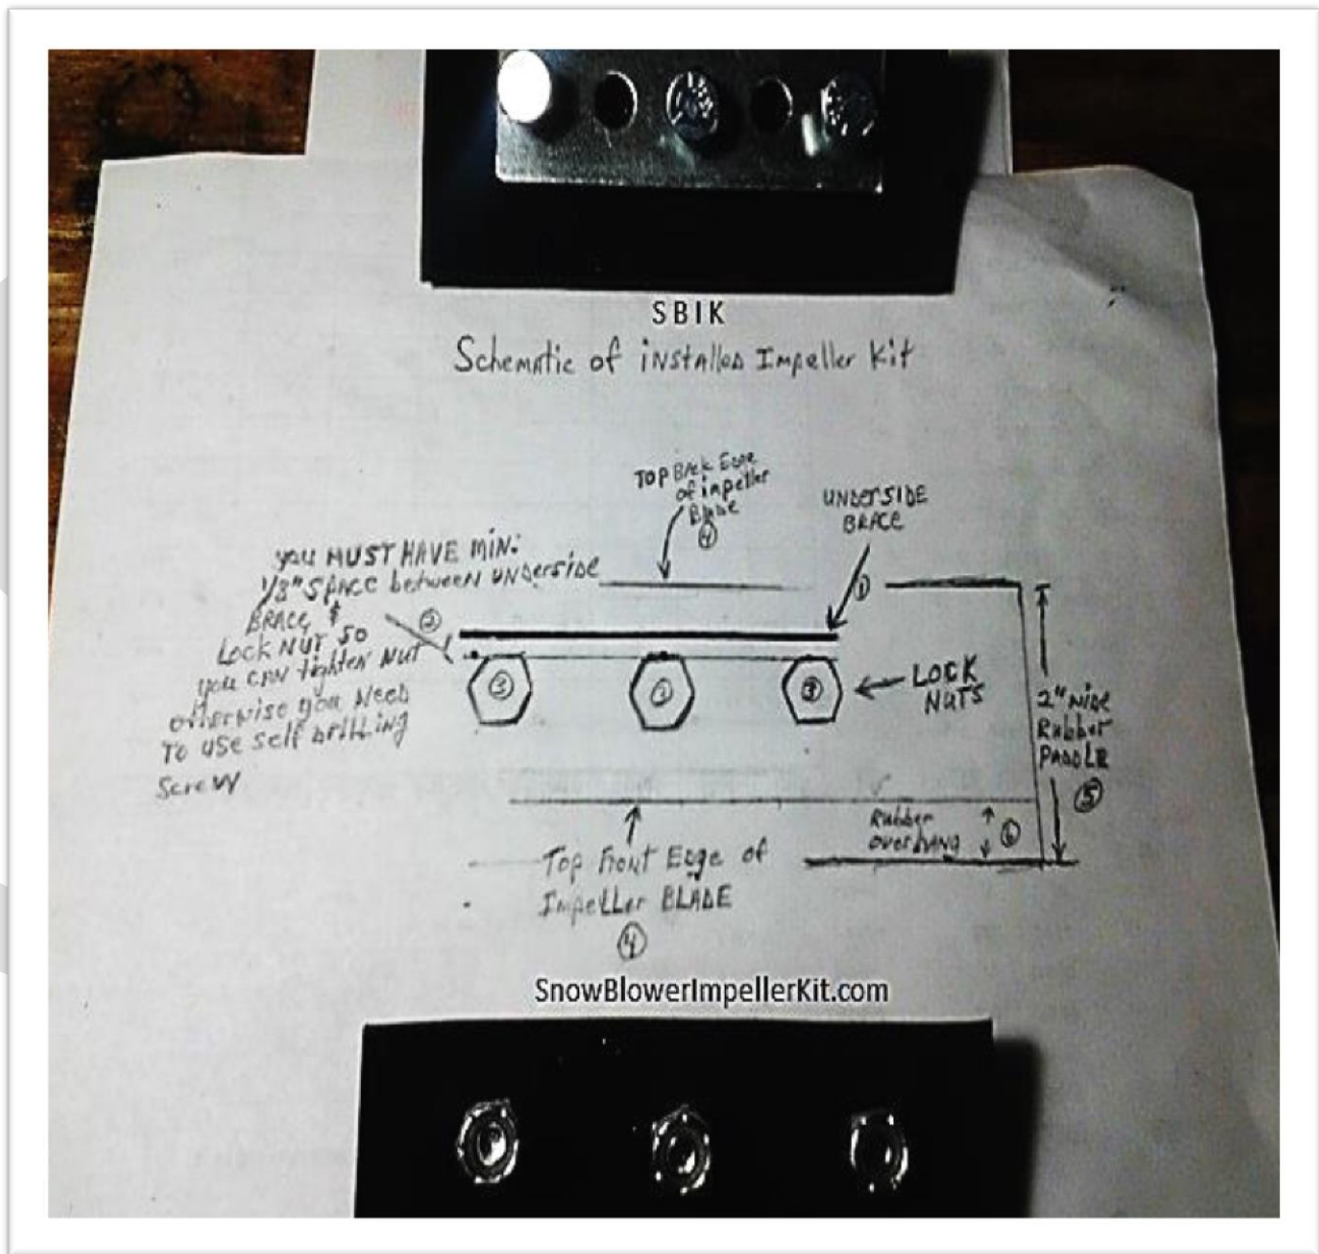 SBIK
Schematic of installed Impeller Kit
TOP BACK EDGE
of impeller
Blade
④
UNDERSIDE
BRACE
①
you MUST HAVE MIN:
1/8" SPACE between UNDERSIDE
BRACE &
LOCK NUT SO
you CAN tighten NUT
otherwise you NEED
TO USE SELF DRILLING
Screw
②
③
③
③
LOCK
NUTS
2" WIDE
Rubber
PADDLE
⑤
Rubber
overhang
⑥
Top Front Edge of
Impeller BLADE
④
SnowBlowerImpellerKit.com